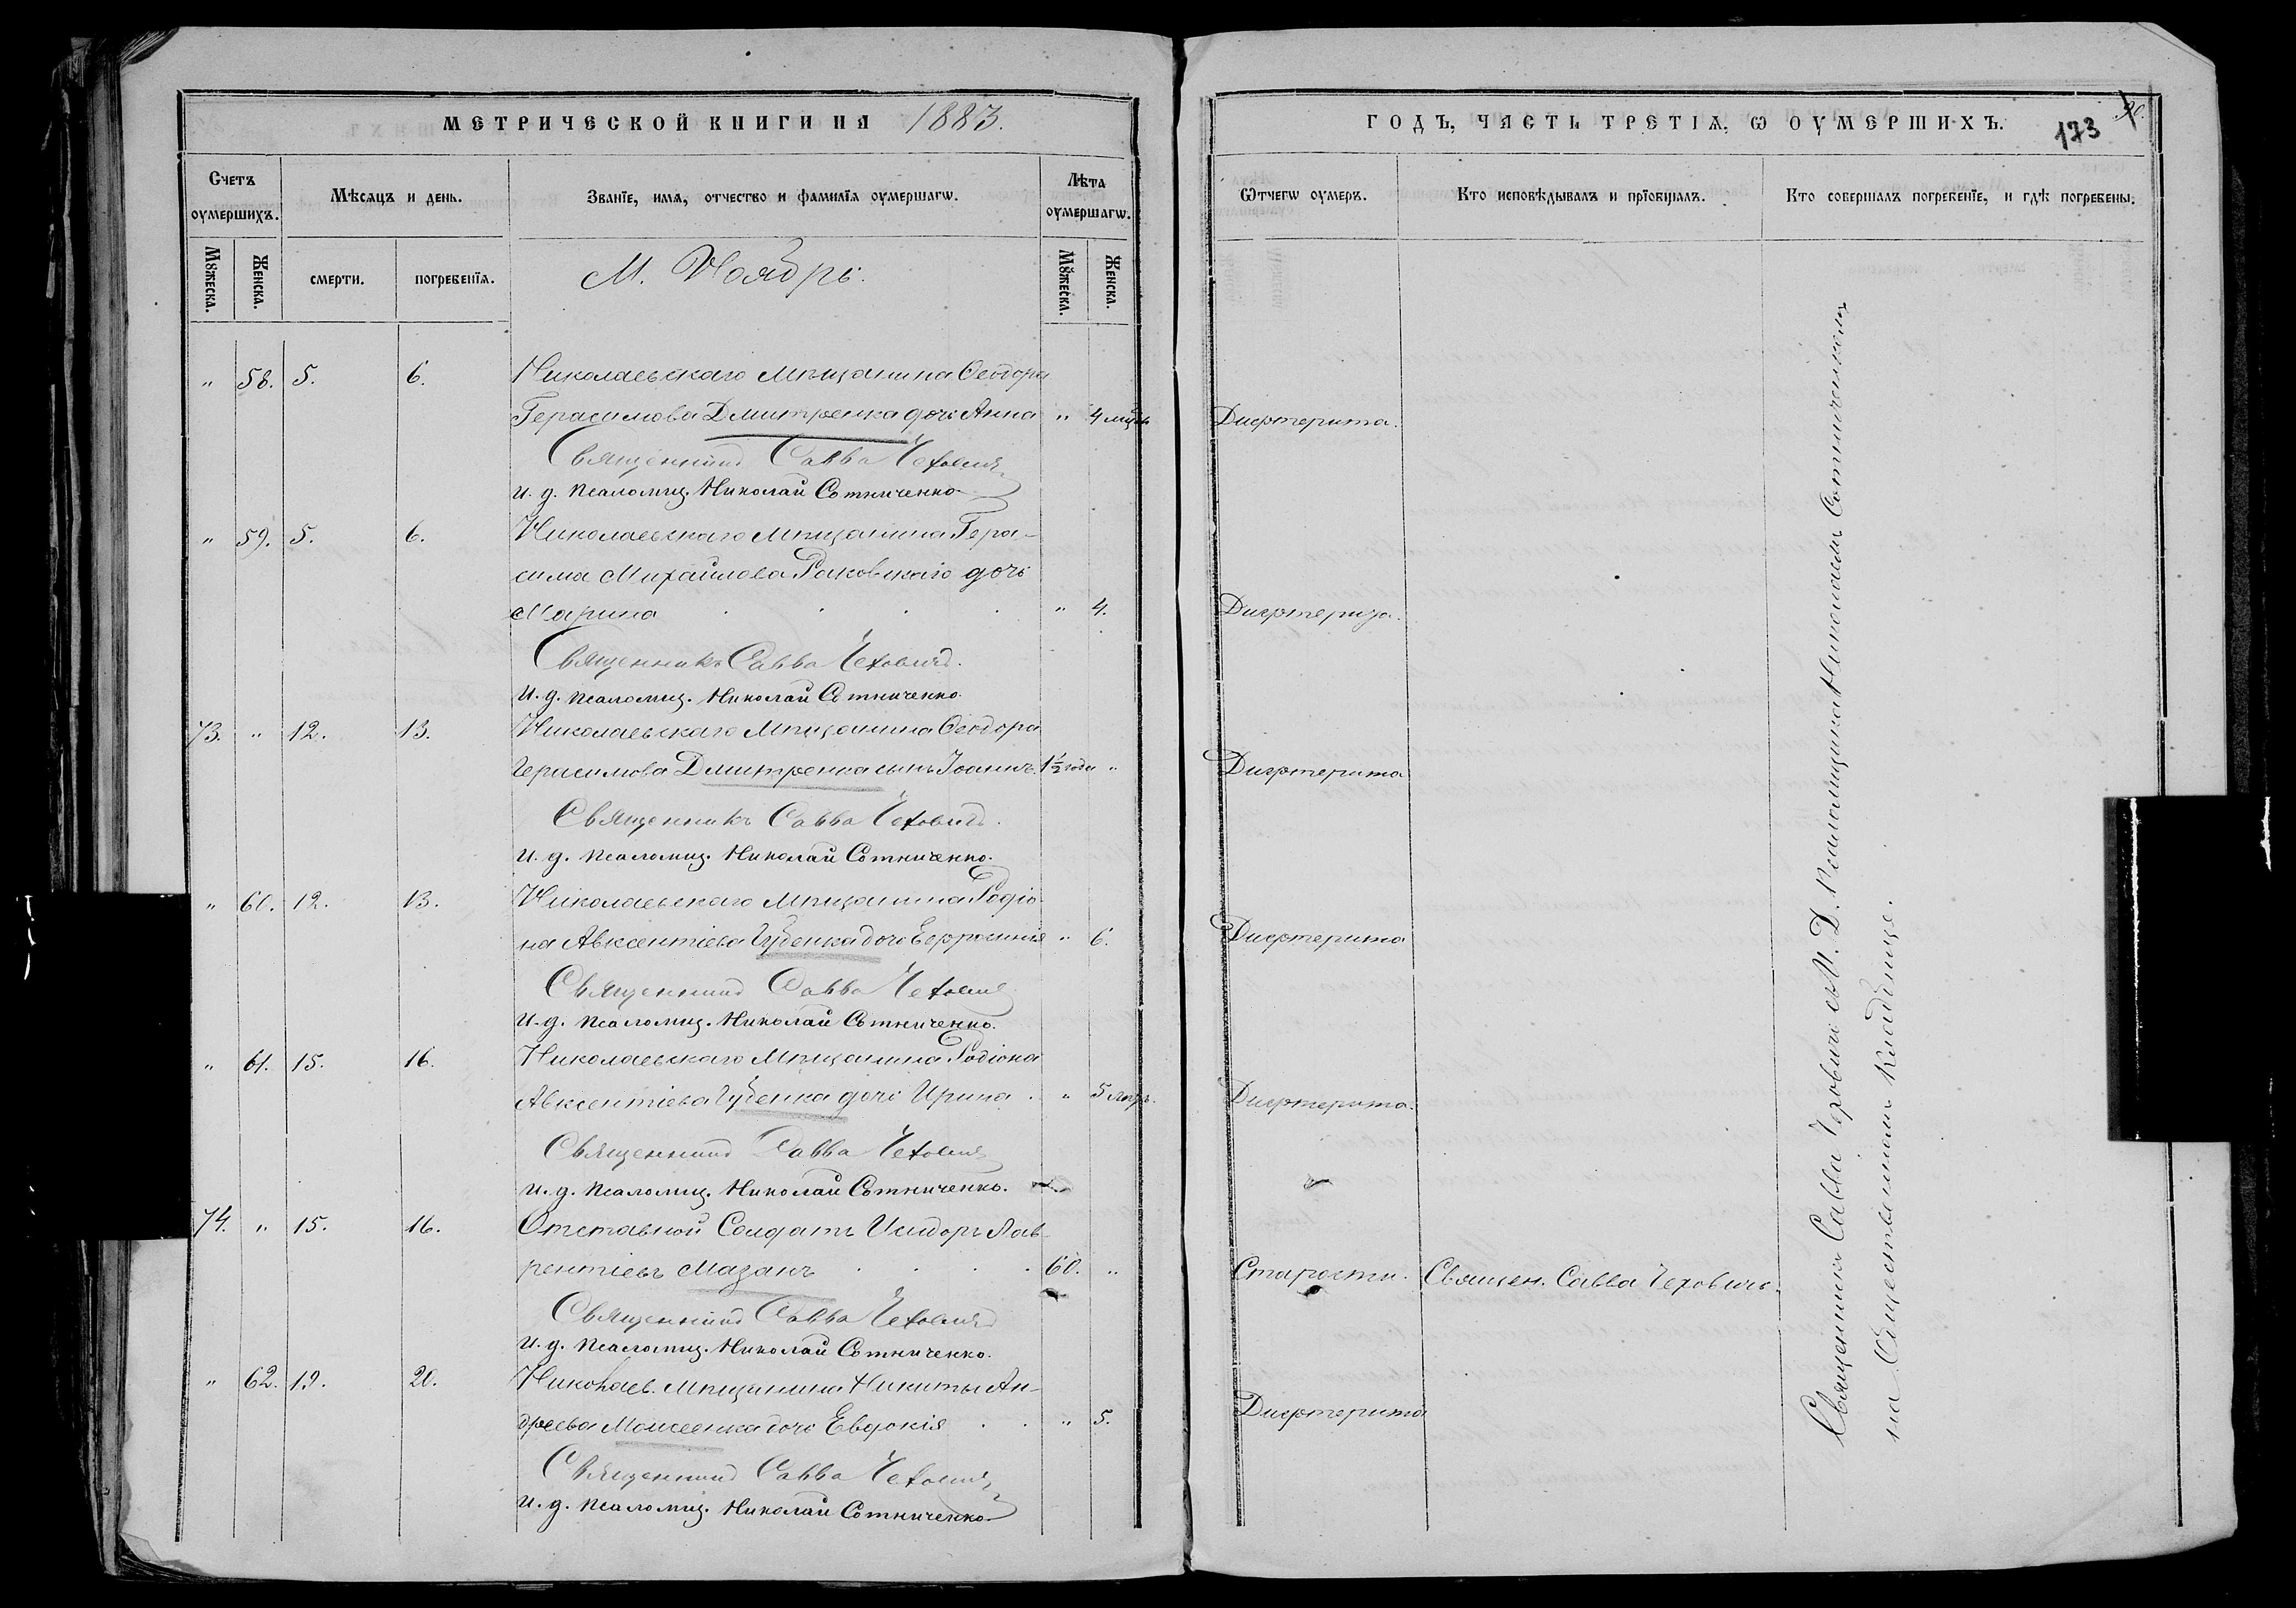 МЕТРИЧЕСКОЙ КНИГИ НА 1883.
Счетъ оумершихъ.
Мѣсяцъ и день.
Званїе, имя, отчество и фамилїа оумершагѡ.
Лѣта оумершагѡ.
Мꙋжеска.
Женска.
смерти.
погребенїя.
М. Ноябрь.
Мꙋжеска.
Женска.
" 58. 5. 6. Николаевскаго Мѣщанина Ѳеодора
Герасимова Дмитренка дочь Анна " 4 мѣс.
Священникъ Савва Чеховичъ
И. д. псаломщ. Николай Сотниченко
" 59. 5. 6. Николаевскаго Мѣщанина Гера-
сима Михайлова Раковскаго дочь
Марина " 4.
Священникъ Савва Чеховичъ.
И. д. псаломщ. Николай Сотниченко.
73. " 12. 13. Николаевскаго Мѣщанина Ѳеодора
Герасимова Дмитренка сынъ Іоаннъ. 1½ года "
Священникъ Савва Чеховичъ.
И. д. псаломщ. Николай Сотниченко.
" 60. 12. 13. Николаевскаго Мѣщанина Родіо-
на Авксентіева Губенка дочь Евфросинія " 6.
Священникъ Савва Чеховичъ
И. д. псаломщ. Николай Сотниченко.
" 61. 15. 16. Николаевскаго Мѣщанина Родіона
Авксентіева Губенка дочь Ирина. " 5
Священникъ Савва Чеховичъ
И. д. псаломщ. Николай Сотниченко.
74. " 15. 16. Отставной Солдатъ Исидоръ Лав-
рентіевъ Мазанъ 60. "
Священникъ Савва Чеховичъ
И. д. псаломщ. Николай Сотниченко.
" 62. 19. 20. Николаев. Мѣщанина Никиты Ан-
дреева Моисеенка дочь Евдокія " 5.
Священникъ Савва Чеховичъ
И. д. псаломщ. Николай Сотниченко
ГОДЪ, ЧАСТЬ ТРЕТІЯ, Ѡ ОУМЕРШИХЪ.
173
Ѿчегѡ оумеръ.
Кто исповѣдывалъ и прїобщалъ.
Кто совершалъ погребенїе, и гдѣ погребены.
Дифтерита.
Дифтерита.
Дифтерита
Дифтерита
Дифтерита.
Старости. Священ. Савва Чеховичъ.
Дифтерита
Священникъ Савва Чеховичъ съ И. Д. Псаломщика Николаемъ Сотниченкомъ
на Общественномъ Кладбище.